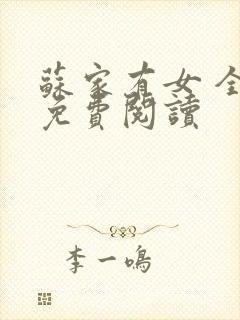 蘇家有女全
免費閱讀
李一鳴